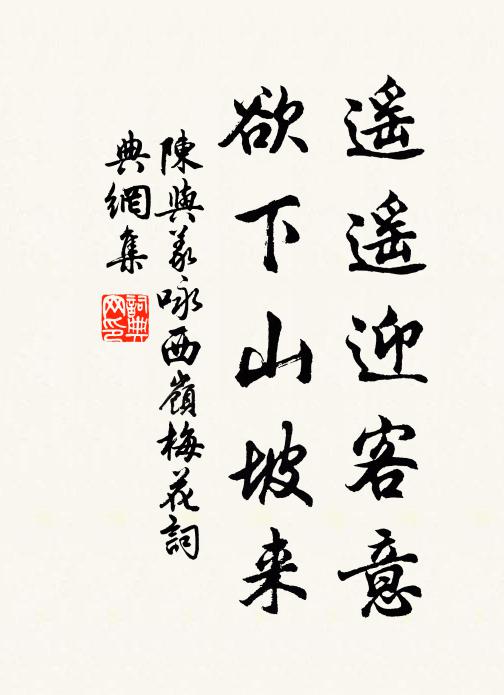 遥遥迎客意
欲下山坡来
陳與義咏西嶺梅花詞
典網集
詞典网印